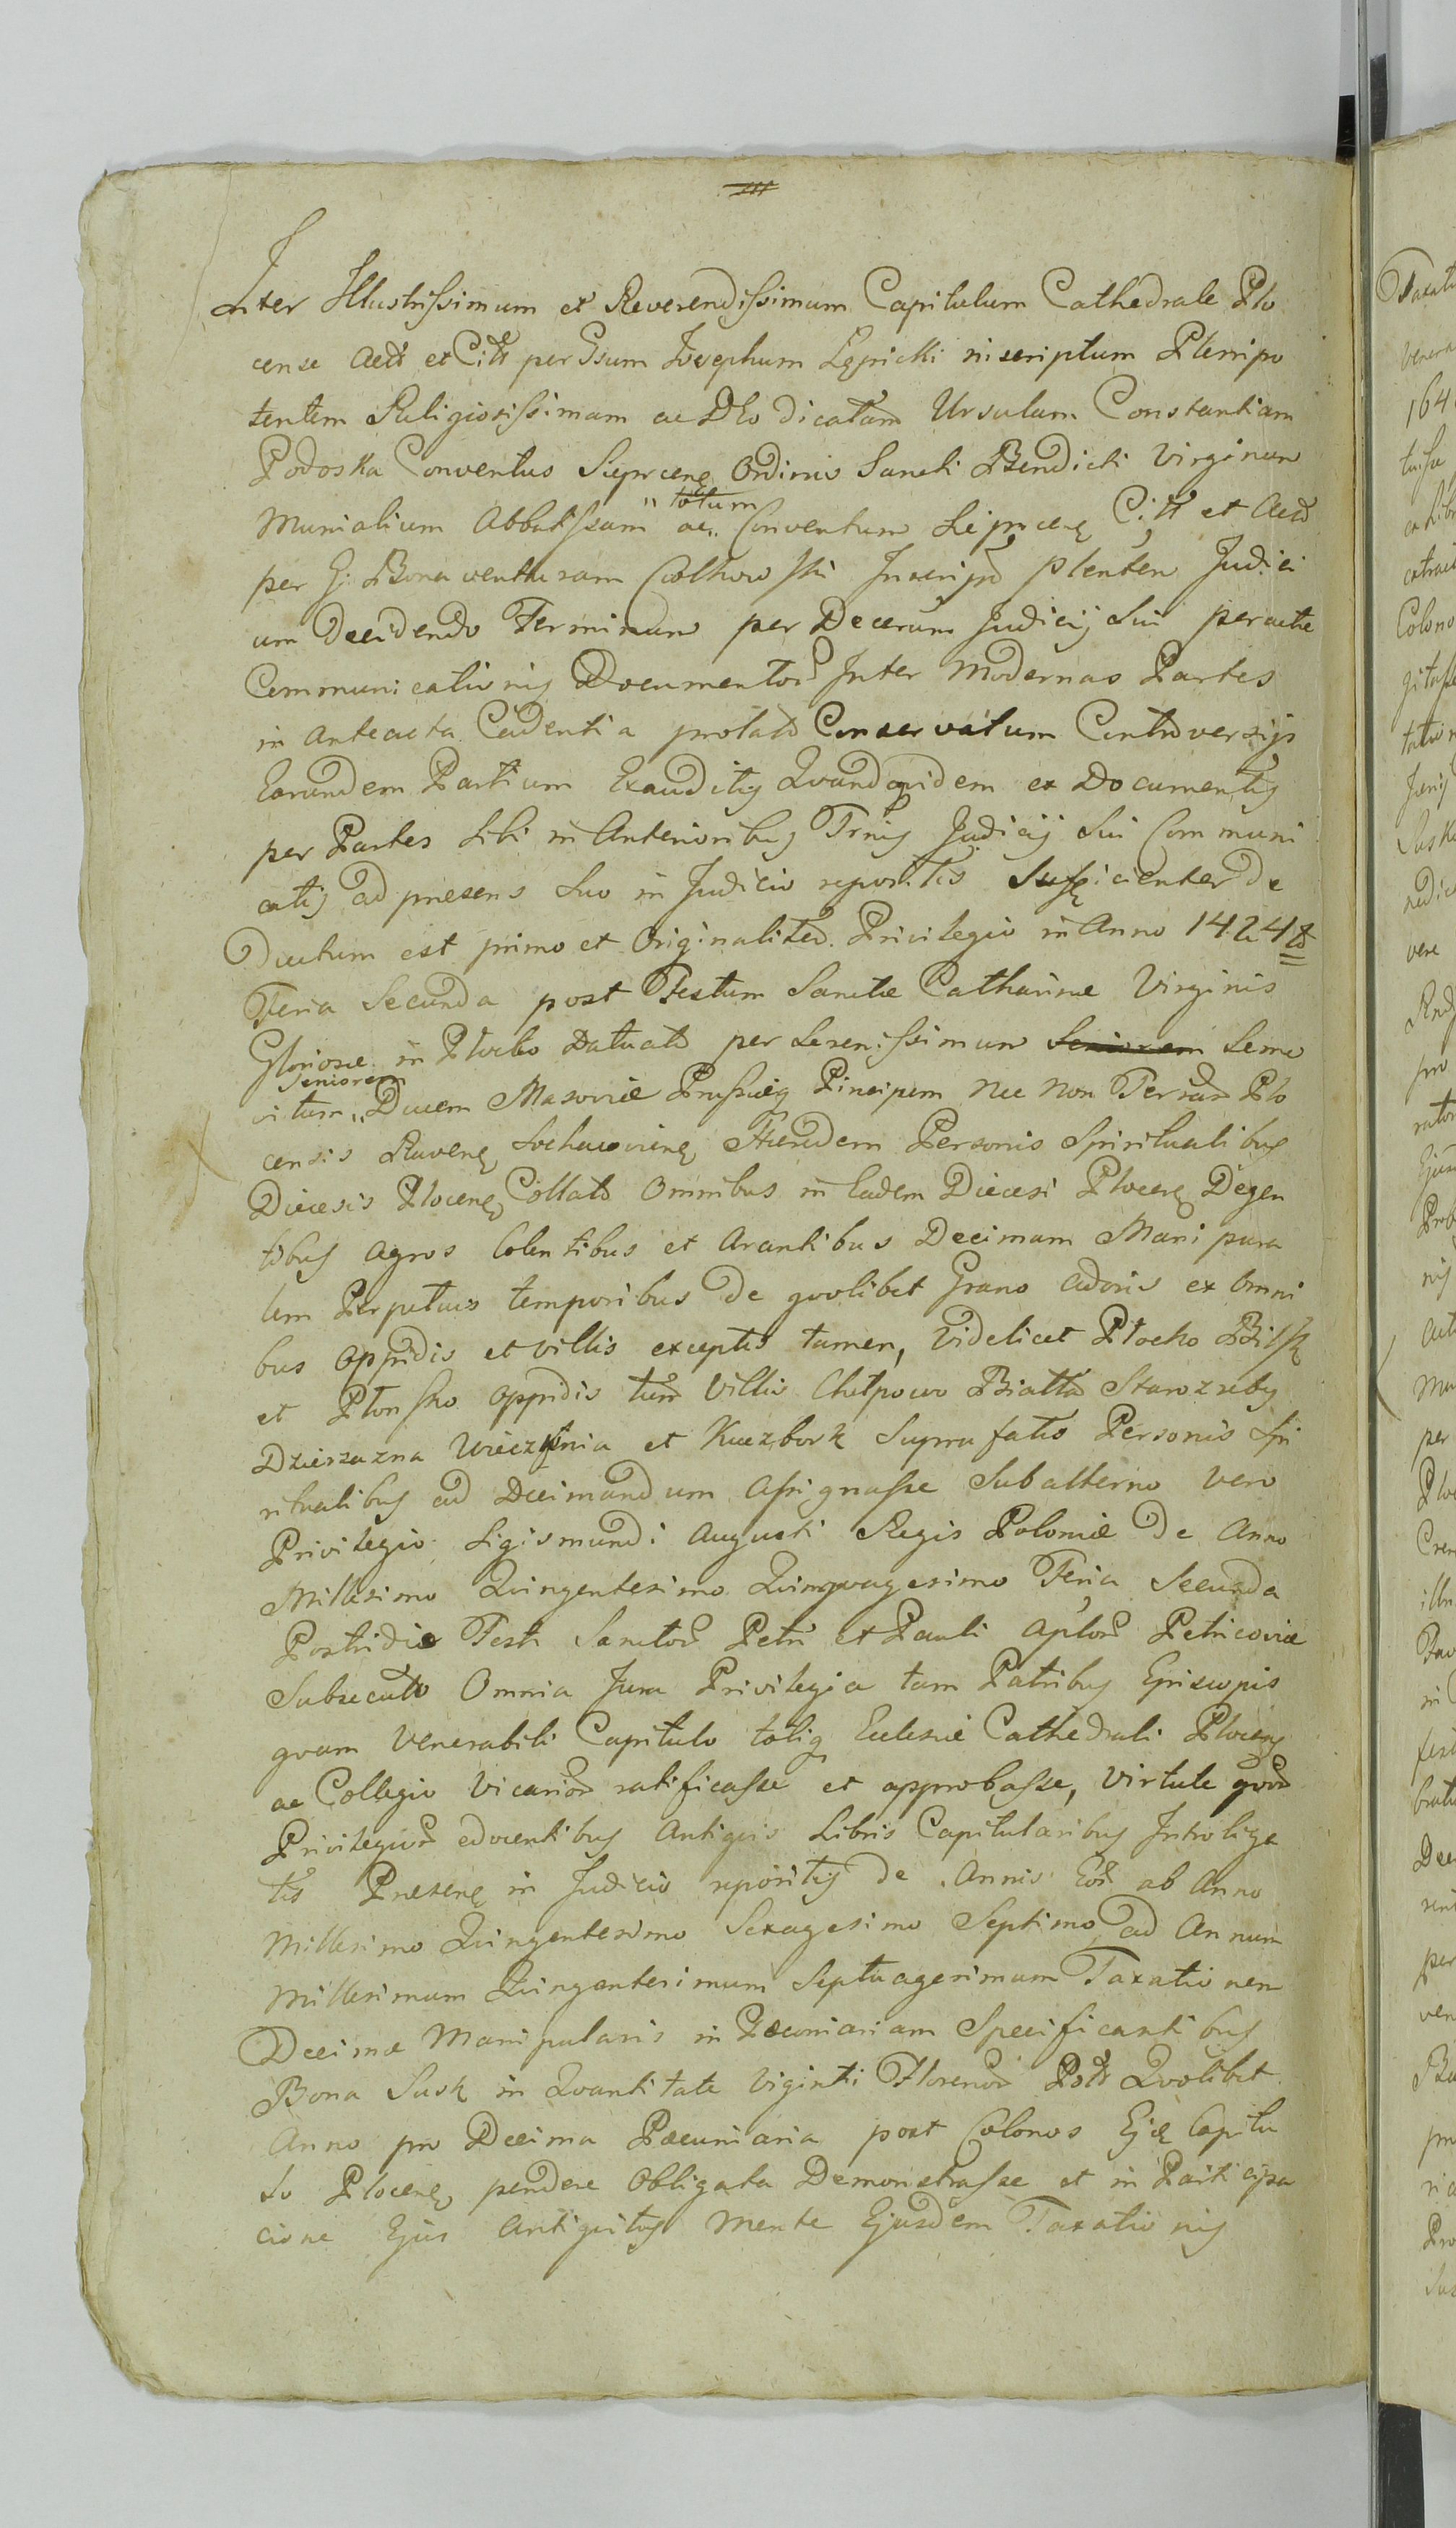 Inter Illustrissimum et Reverendissimum Capitulum Cathedrale Plo
cense Actt et Citt per Gsum Josephum Lępicki inscriptum Plenipo
tentem Religiosissimam ac Deo dicatam Ursulam Constantiam
Podoska Conventus Sieprcens Ordinis Sancti Benedicti Virginum
totum
Monialium Abbatissam ac Conventum Sieprcens Citt et Act
per G. Bonaventuram Inscript Plenten Judici
um Decidendo Terminum per Decretum Judicij Sui peractæ
Communicationis Documentor Inter Modernas Partes
in anteacta Cadentia prolato Conservatum Controversijs
Earundem Partium Exauditis Quandoquidem ex Documentis
per Partes Sibi in Anterioribus Trnis Judicij Sui Communi
catis ad præsens Suo in Judicio repositis Sufficienter de
Ductum est primo et Originaliter Privilegio in Anno 1424
Feria Secunda post Festum Sanctæ Catharinæ Virginis
Gloriosæ in Plocko Datuato per Serenissimum Seniorem Semo
Seniorem
vitum Ducem Masoviæ Prussieq Pincipem nec non Terrar Plo
censis Ravens Sochaviens Hærdem Personis Spiritualibus
Diæcesis Plocens Collato Omnibus in Eadem Diæcesi Plocens Degen
tibus agros Colentibus et Arantibus Decimam Manipura
lem Perpetuis temporibus de qvolibet Grano adoris ex Omni
bus Oppidis et villis exceptis tamen, videlicet Plocko Bilsk
et Plonsko oppidis tum Villis Chelpowo Bialla Starozreby
Dzierzazna Wieczfnia et Kuczbork Suprafatis Personis Spi
ritualibus ad Decimandum assignasse Subalterno vero
Privilegio Sigismundi Augusti Regis Poloniæ de Anno
Millesimo Qvingentesimo Qvinqvagesimo Feria Secunda
Postridie Festi Sanctor Petri et Pauli aplor Petricoviæ
Subsecuto Omnia Jura Privilegia tam Patribus Episcopis
qvam Venerabili Capitulo totiq Ecclesiæ Cathedrali Plocens
ac Collegio Vicarior ratificasse et approbasse, Virtute qvor
Privilegior edocentibus Antiqvis Libris Capitularibus Introliga
tis Præsens in Judicio repositis de Annis Eor ab Anno
Millesimo Qvingentesimo Sexagesimo Septimo ad Annum
Millesimum Qvingentesimum Septuagesimum Taxationem
Decimæ Manipularis in Pæcuniariam Specificantibus
Bona Susk in Qvantitate Viginti Florenor Polt Qvolibet
Anno pro Decima Pæcuniaria post Colonos Ejæ Capitu
lo Plocens pendere Obligata Demonstrasse et in Participa
cione Ejus Antiqvitus Mente Ejusdem Taxationis